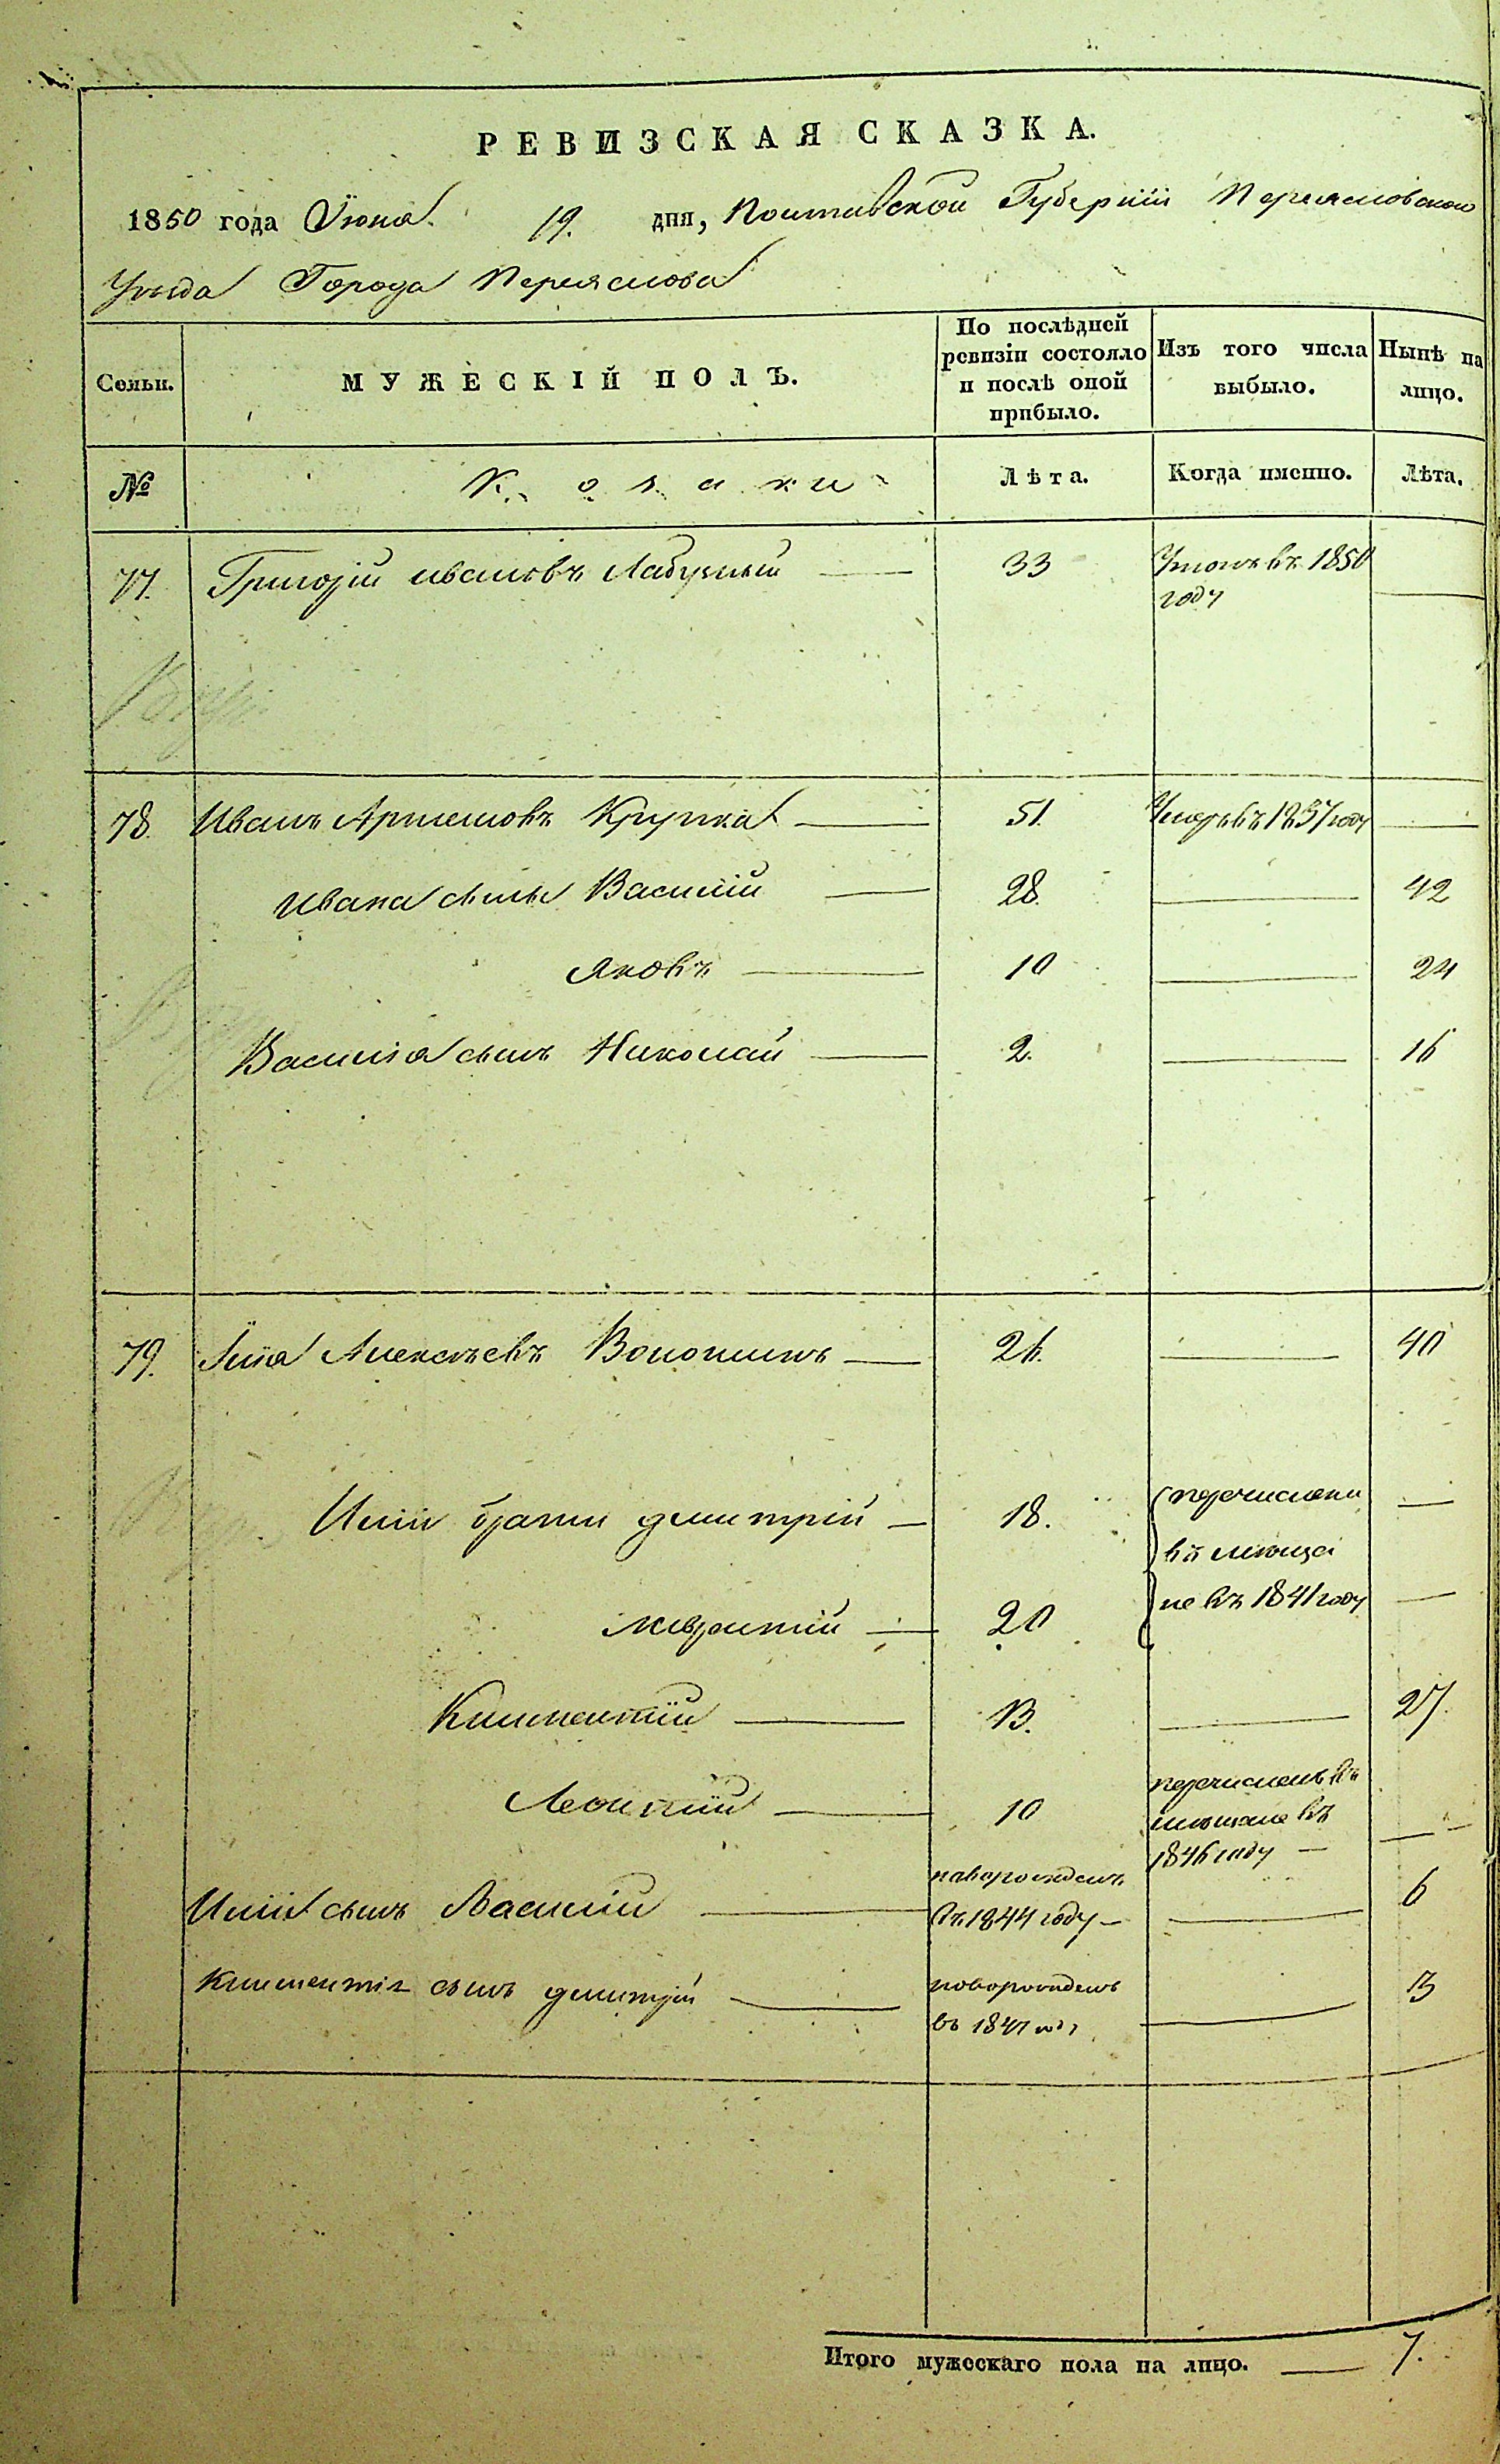 РЕВИЗСКАЯ СКАЗКА.
1850 года Іюня 19. дня, Полтавской Губерніи Переяславского
Уѣзда Города Переяслова
Семьи. МУЖЕСКІЙ ПОЛЪ. По послѣдней ревизіи состояло и послѣ оной прибыло. Изъ того числа выбыло. Нынѣ на лицо.
№ Козаки Лѣта. Когда именно. Лѣта.
77. Григорій Ивановъ 33 въ 1850
году
78. Иванъ Артемовъ Крупка 51. Умеръ въ 1837 году
Ивана сыны Василій 28. 42
Яковъ 10 24
Василія сынъ Николай 2. 16
79. Илія Алексѣевъ Волошинъ 26. 40
Иліи братья Дмитрій 18. перечислены
въ мѣща
не въ 1841 году
Лаврентій 20
Климентій 13. 27.
Леонтій 10 перечисленъ въ
мѣщане въ
1846 году
Иліи сынъ Василій новорожденъ
въ 1844 году 6
Климентія сынъ Дмитрій новорожденъ
въ 1847 году 3
Итого мужескаго пола на лицо. 7.